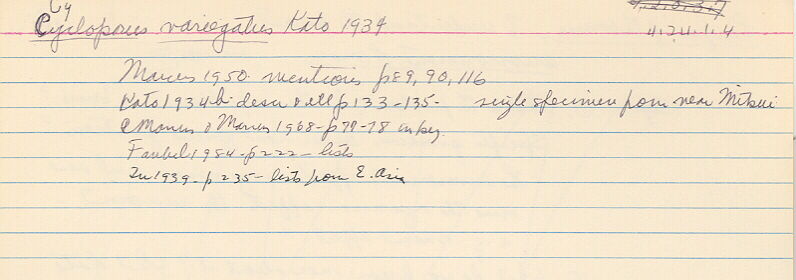 Cy
Cycloporus variegatus Kato 1934
4.24.1.4
Marcus 1950 mentions p89, 90, 116
Kato 1934b descr & ill p133-135- single specimen from near Mitsui
Marcus & Marcus 1968- p77-78 in key.
Faubel 1984- p222- lists
Tu 1939- p235- lists from E. Asia